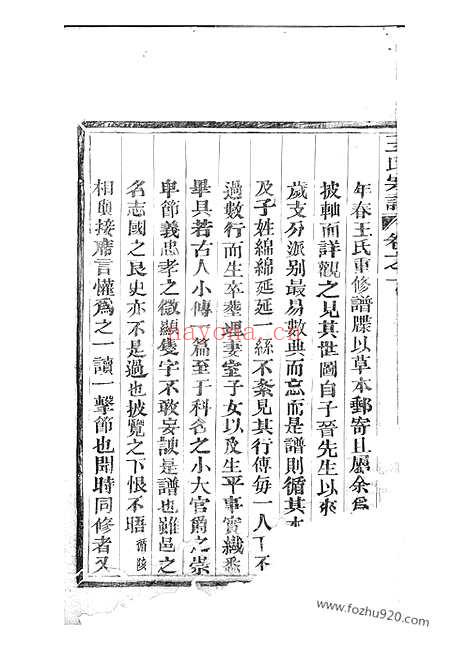 王氏宗譜 卷之
年春王氏重修譜牒以草本郵寄且屬余爲
披軸而詳觀之見其世圖自子晉先生以來
歲支分派别最易數典而忘而是譜則循其本
及子姓綿綿延延一絲不紊見其行傳每一人下不
過數行而生卒塟選妻室子女以及生平事實纖悉
畢具若古人小傳篇至于科名之小大官爵之崇
卑節義忠孝之微顯隻字不敢妄諛是譜也雖邑之
名志國之良史亦不是過也披覽之下恨不晤 脩陵
相與接麈言懽爲之一讀一擊節也聞時同修者又
nayona.cn
www.fozhu920.com